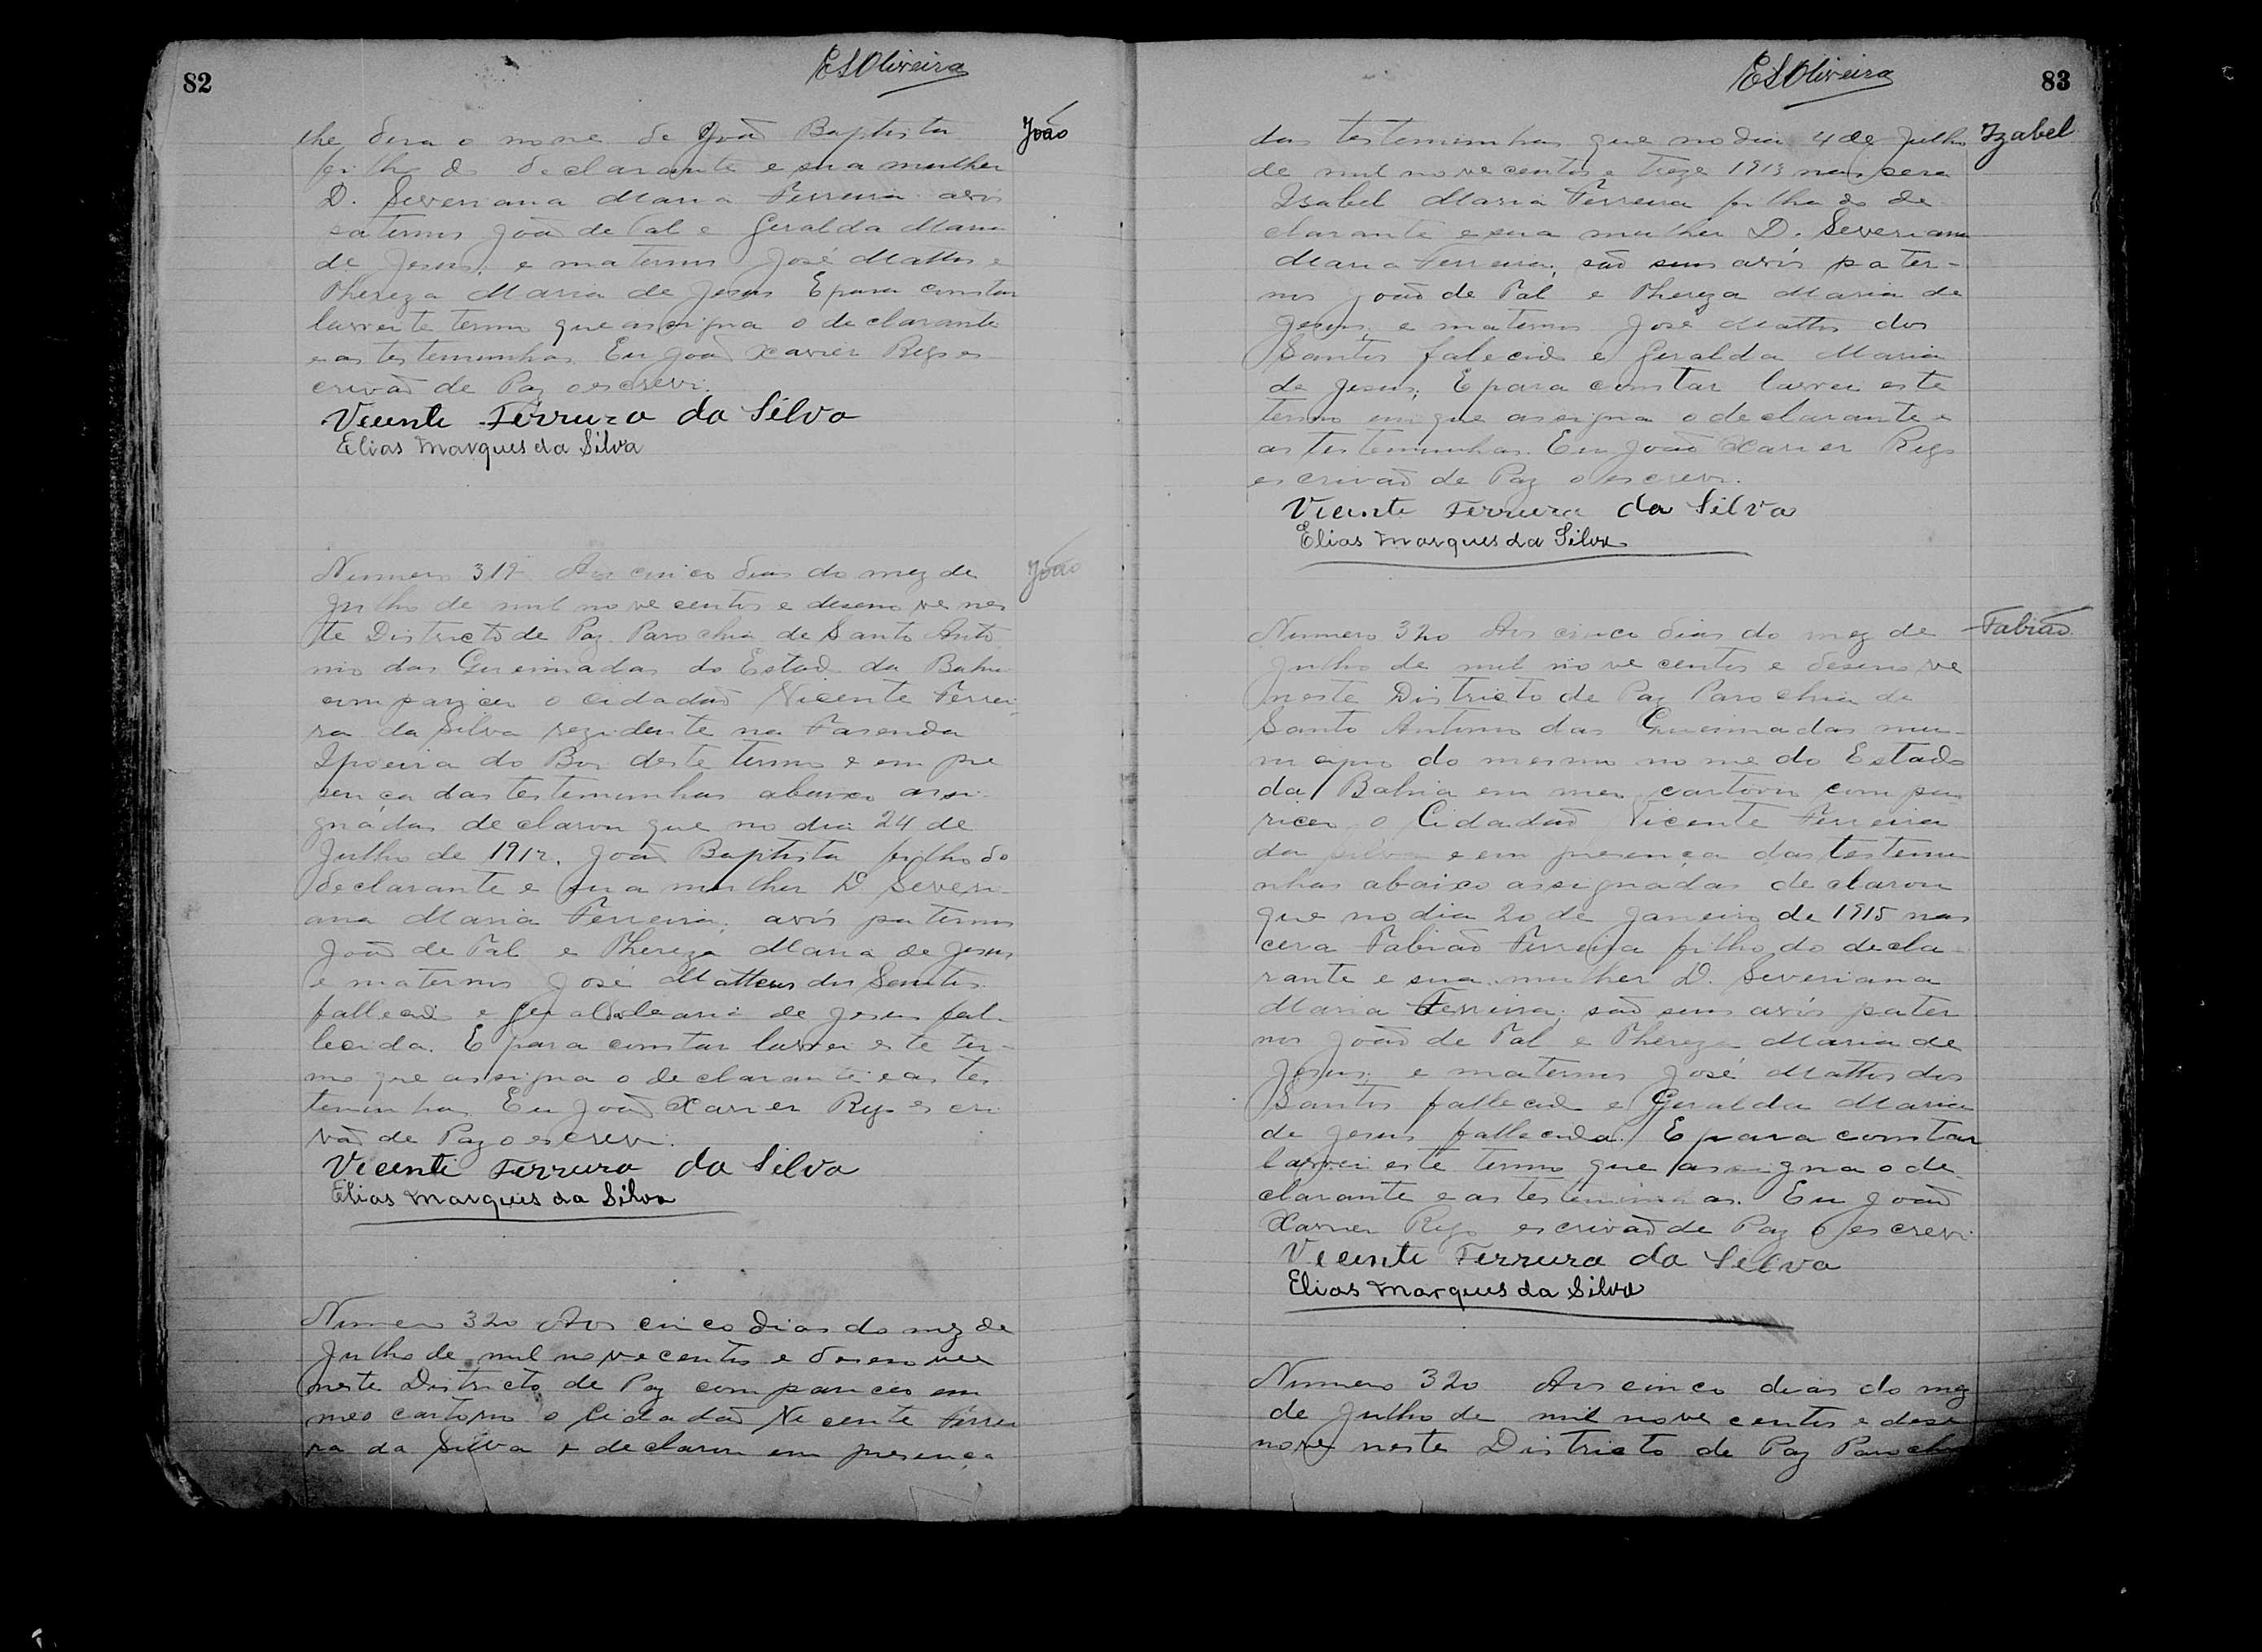 82
ESOliveira
lhe dera o nome de João Baptista
João
filho do declarante e sua mulher
D. Severiana Maria Ferreira avós
paternos João de Tal e Geralda Maria
de Jesus; e maternos José Mattos e
Thereza Maria de Jesus E para constar
lavrei te termo que assigna o declarante
e as testemunhas. Eu João Xavier Rego es
crivão de Paz o escrevi.
Vicente Ferreira da Silva
Elias Marques da Silva
Numero 319 Aos cinco dias do mez de
João
Julho de mil nove centos e desenove nes
te Districto de Paz Parochia de Santo Anto
nio das Queimadas do Estado da Bahia
compariceu o cidadão Vicente Ferrei
ra da Silva rezidente na Fasenda
Ipoeira do Boi deste termo e em pre
sença das testemunhas abaixo assi
gnadas declarou que no dia 24 de
Julho de 1912, João Baptista filho do
declarante e sua mulher D. Severi
ana Maria Ferreira; avós paternos
João de Tal e Thereza Maria de Jesus
e maternos José Mattos dos Santos
fallecido e de Jesus fal
lecida. E para constar lavrei este ter
mo que assigna o declarante e as tes
temunhas Eu João Xavier Rego escri
vão de Paz o escrevi.
Vicente Ferreira da Silva
Elias Marques da Silva
Numero 320 Aos cinco dias do mez de
Julho de mil nove centos e desenove
neste Districto de Paz compariceu em
meo cartorio o Cidadão Vicente Ferrei
ra da Silva e declarou em presença
ESOliveira
83
das testemunhas que no dia 4 de Julho
Izabel
de mil nove centos e treze 1913 nascera
Isabel Maria Ferreira filha do de
clarante e sua mulher D. Severiana
Maria Ferreira; são seus avós pater-
nos João de Tal e Thereza Maria de
Jesus; e maternos José Mattos dos
Santos falecido e Geralda Maria
de Jesus; E para constar lavrei este
termo em que assigna o declarante e
as testemunhas. Eu João Xavier Rego
escrivão de Paz o escrevi.
Vicente Ferreira da Silva
Elias Marques da Silva
Numero 320 Aos cinco dias do mez de
Fabião
Julho de mil nove centos e desenove
neste Districto de Paz Parochia de
Santo Antonio das Queimadas mu-
nicipio do mesmo nome do Estado
da Bahia em meu cartorio compa
riceu o Cidadão Vicente Ferreira
da Silva e em presença das testemu
nhas abaixo assignadas declarou
que no dia 20 de Janeiro de 1915 nas
cera Fabião Ferreira filho do decla-
rante e sua mulher D. Severiana
Maria Ferreira; são seus avós pater
nos João de Tal e Thereza Maria de
Jesus; e maternos José Mattos dos
Santos fallecido e Geralda Maria
de Jesus fallecida. E para constar
lavrei este termo que assigna o de
clarante e as testemunhas. Eu João
Xavier Rego escrivão de Paz o escrevi
Vicente Ferreira da Silva
Elias Marques da Silva
Numero 320 Aos cinco dias do mez
de Julho de mil nove centos e dese
nove neste Districto de Paz Parochia